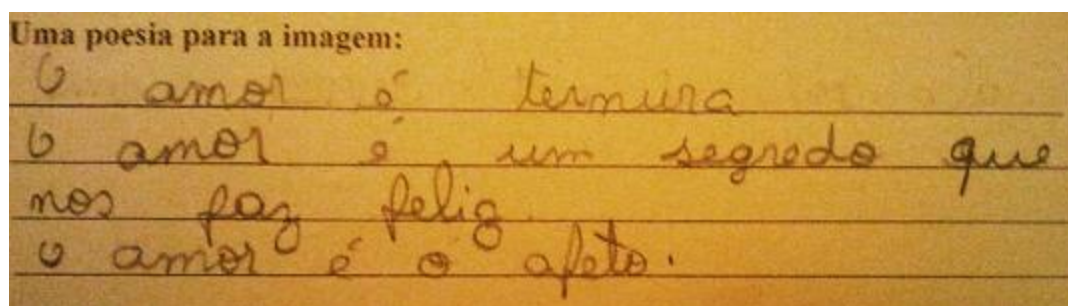 Uma poesia para a imagem:
O amor é ternura
O amor é um segredo que
nos faz feliz.
O amor é o afeto.